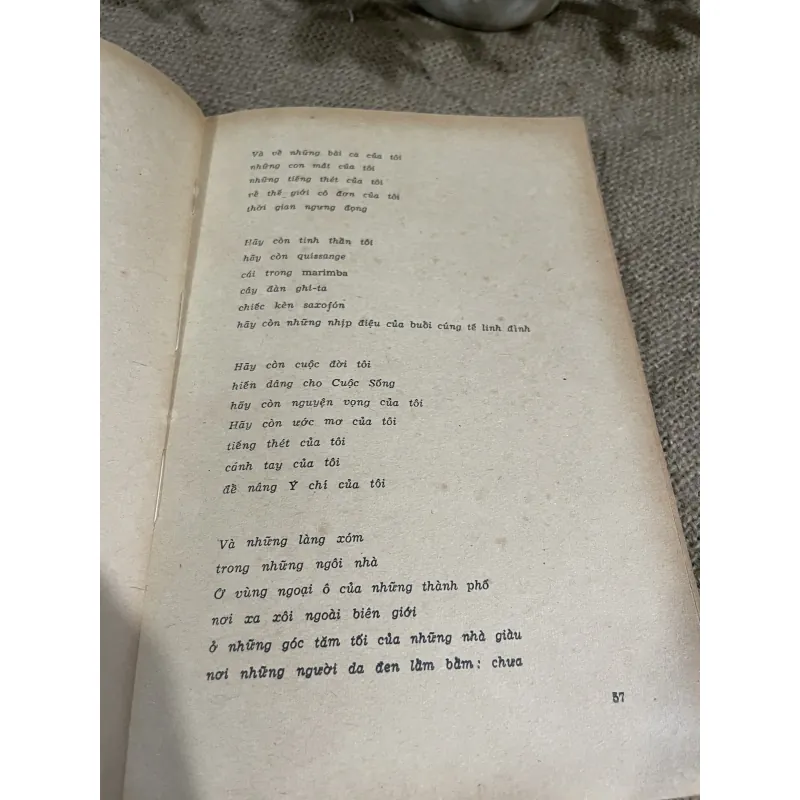 Và về những bài ca của tôi
những con mắt của tôi
những tiếng thét của tôi
về thế giới cô đơn của tôi
thời gian ngưng đọng
Hãy còn tinh thần tôi
hãy còn quissange
cái trong marimba
cây đàn ghi-ta
chiếc kèn saxofón
hãy còn những nhịp điệu của buổi cúng tế linh đình
Hãy còn cuộc đời tôi
hiến dâng cho Cuộc Sống
hãy còn nguyện vọng của tôi
Hãy còn ước mơ của tôi
tiếng thét của tôi
cánh tay của tôi
để nâng Ý chí của tôi
Và những làng xóm
trong những ngôi nhà
Ở vùng ngoại ô của những thành phố
nơi xa xôi ngoài biên giới
ở những góc tăm tối của những nhà giàu
nơi những người da đen lầm bầm: chưa
57